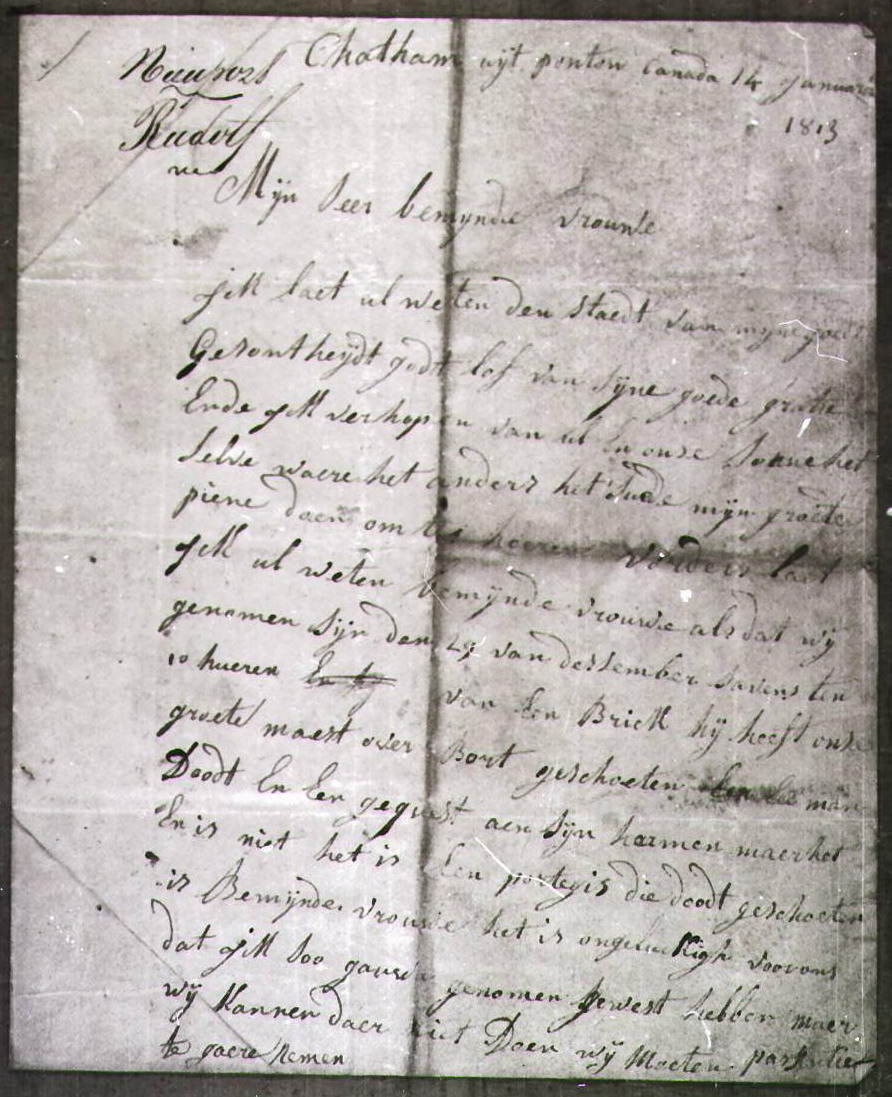 Chatham uijt ponton Canada 14 Januari
1813
Mijn Seer bemijnde vrouwe
jk laet ul weten den staedt van mijne goede
Gesontheijdt godt lof van sijne goede gratie
Ende jk verhopen van ul En onse Sonne het
Selve waere het anders het Sude mijn groote
piene doen om te hooren vorders laet
jk ul weten bemijnde vrouwe als dat wij
genomen Sijn den 29 van dessember savens ten
10 hueren van Een Briek hij heeft onse
groete maest over Bort geschoeten man
Doodt En Een gequest aen Sijn harmen maer het
En is niet het is Een portegis die doodt geschoeten
is Bemijnde vrouwe het is ongeluckigh voor ons
dat jk Soo gauw genomen gewest hebben maer
wij kannen daer niet Doen wij Moeten passintie
te gaere Nemen